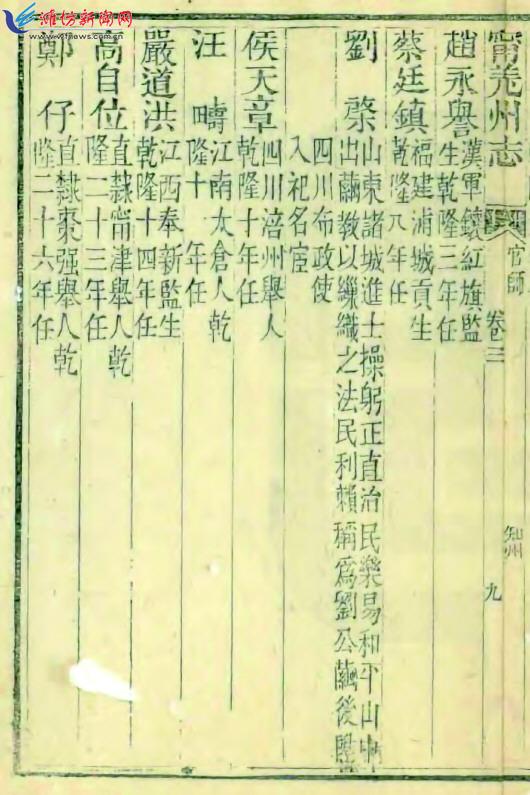 潍坊新闻网
www.wfnews.com.cn
甯羌州志
官師
卷三
知州
九
趙永譽
漢軍鑲紅旗監
生乾隆三年任
蔡廷鎮
福建浦城貢生
乾隆八年任
劉棨
山東諸城進士操躬正直治民樂易和平山中
出繭教以繅織之法民利賴稱為劉公繭後陞
四川布政使
入祀名宦
侯天章
四川涪州舉人
乾隆十年任
汪疇
江南太倉人乾
隆十 年任
嚴道洪
江西奉新監生
乾隆十四年任
高自位
直隸甯津舉人乾
隆二十三年任
鄭仔
直隸棗强舉人乾
隆二十六年任